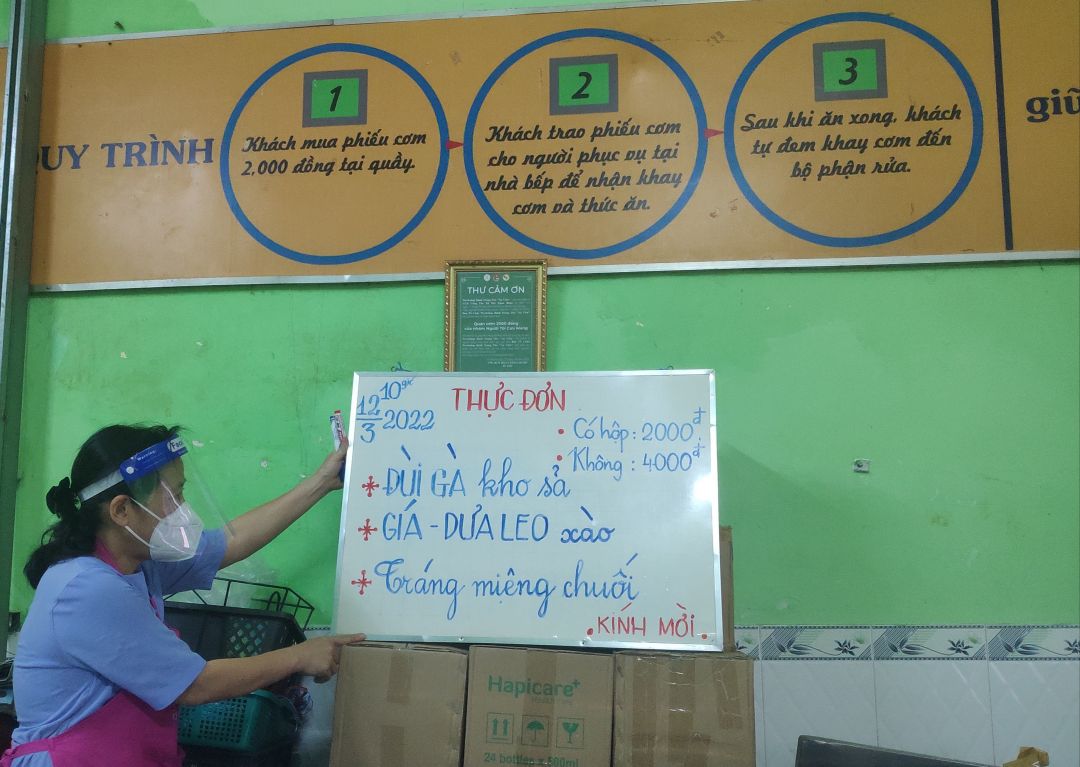 QUY TRÌNH
1
Khách mua phiếu cơm
2,000 đồng tại quầy.
2
Khách trao phiếu cơm
cho người phục vụ tại
nhà bếp để nhận khay
cơm và thức ăn.
3
Sau khi ăn xong, khách
tự đem khay cơm đến
bộ phận rửa.
giữ
THƯ CẢM ƠN
Quán cơm 2000 đồng
10 giờ
12/3 2022
THỰC ĐƠN
• Có hộp: 2000đ
• Không: 4000đ
ĐÙI GÀ kho sả
GIÁ - DƯA LEO xào
Tráng miệng chuối
• KÍNH MỜI •
Hapicare+
24 bottles x 500ml